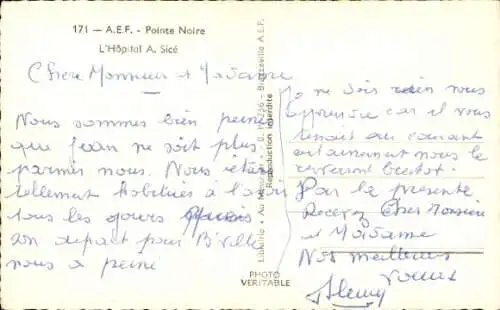 171 — A.E.F. - Pointe Noire
L'Hôpital A. Sicé
Chere Monsieur et Madame
Nous sommes bien peine
que Jean ne soit plus
parmis nous. Nous étions
tellement habitués à l'avoir
tous les jours
son depart pour B'ville
nous a peiné
Librairie « Au Messager » B.P. Brazzaville A.E.F.
Reproduction interdite
PHOTO
VERITABLE
Je ne sais rien vous
apprendre car il vous
tenait au courant
certainement nous le
reverront bientot.
Par la présente
Recevez Cher Monsieur
et Madame
Nos meilleurs
voeux